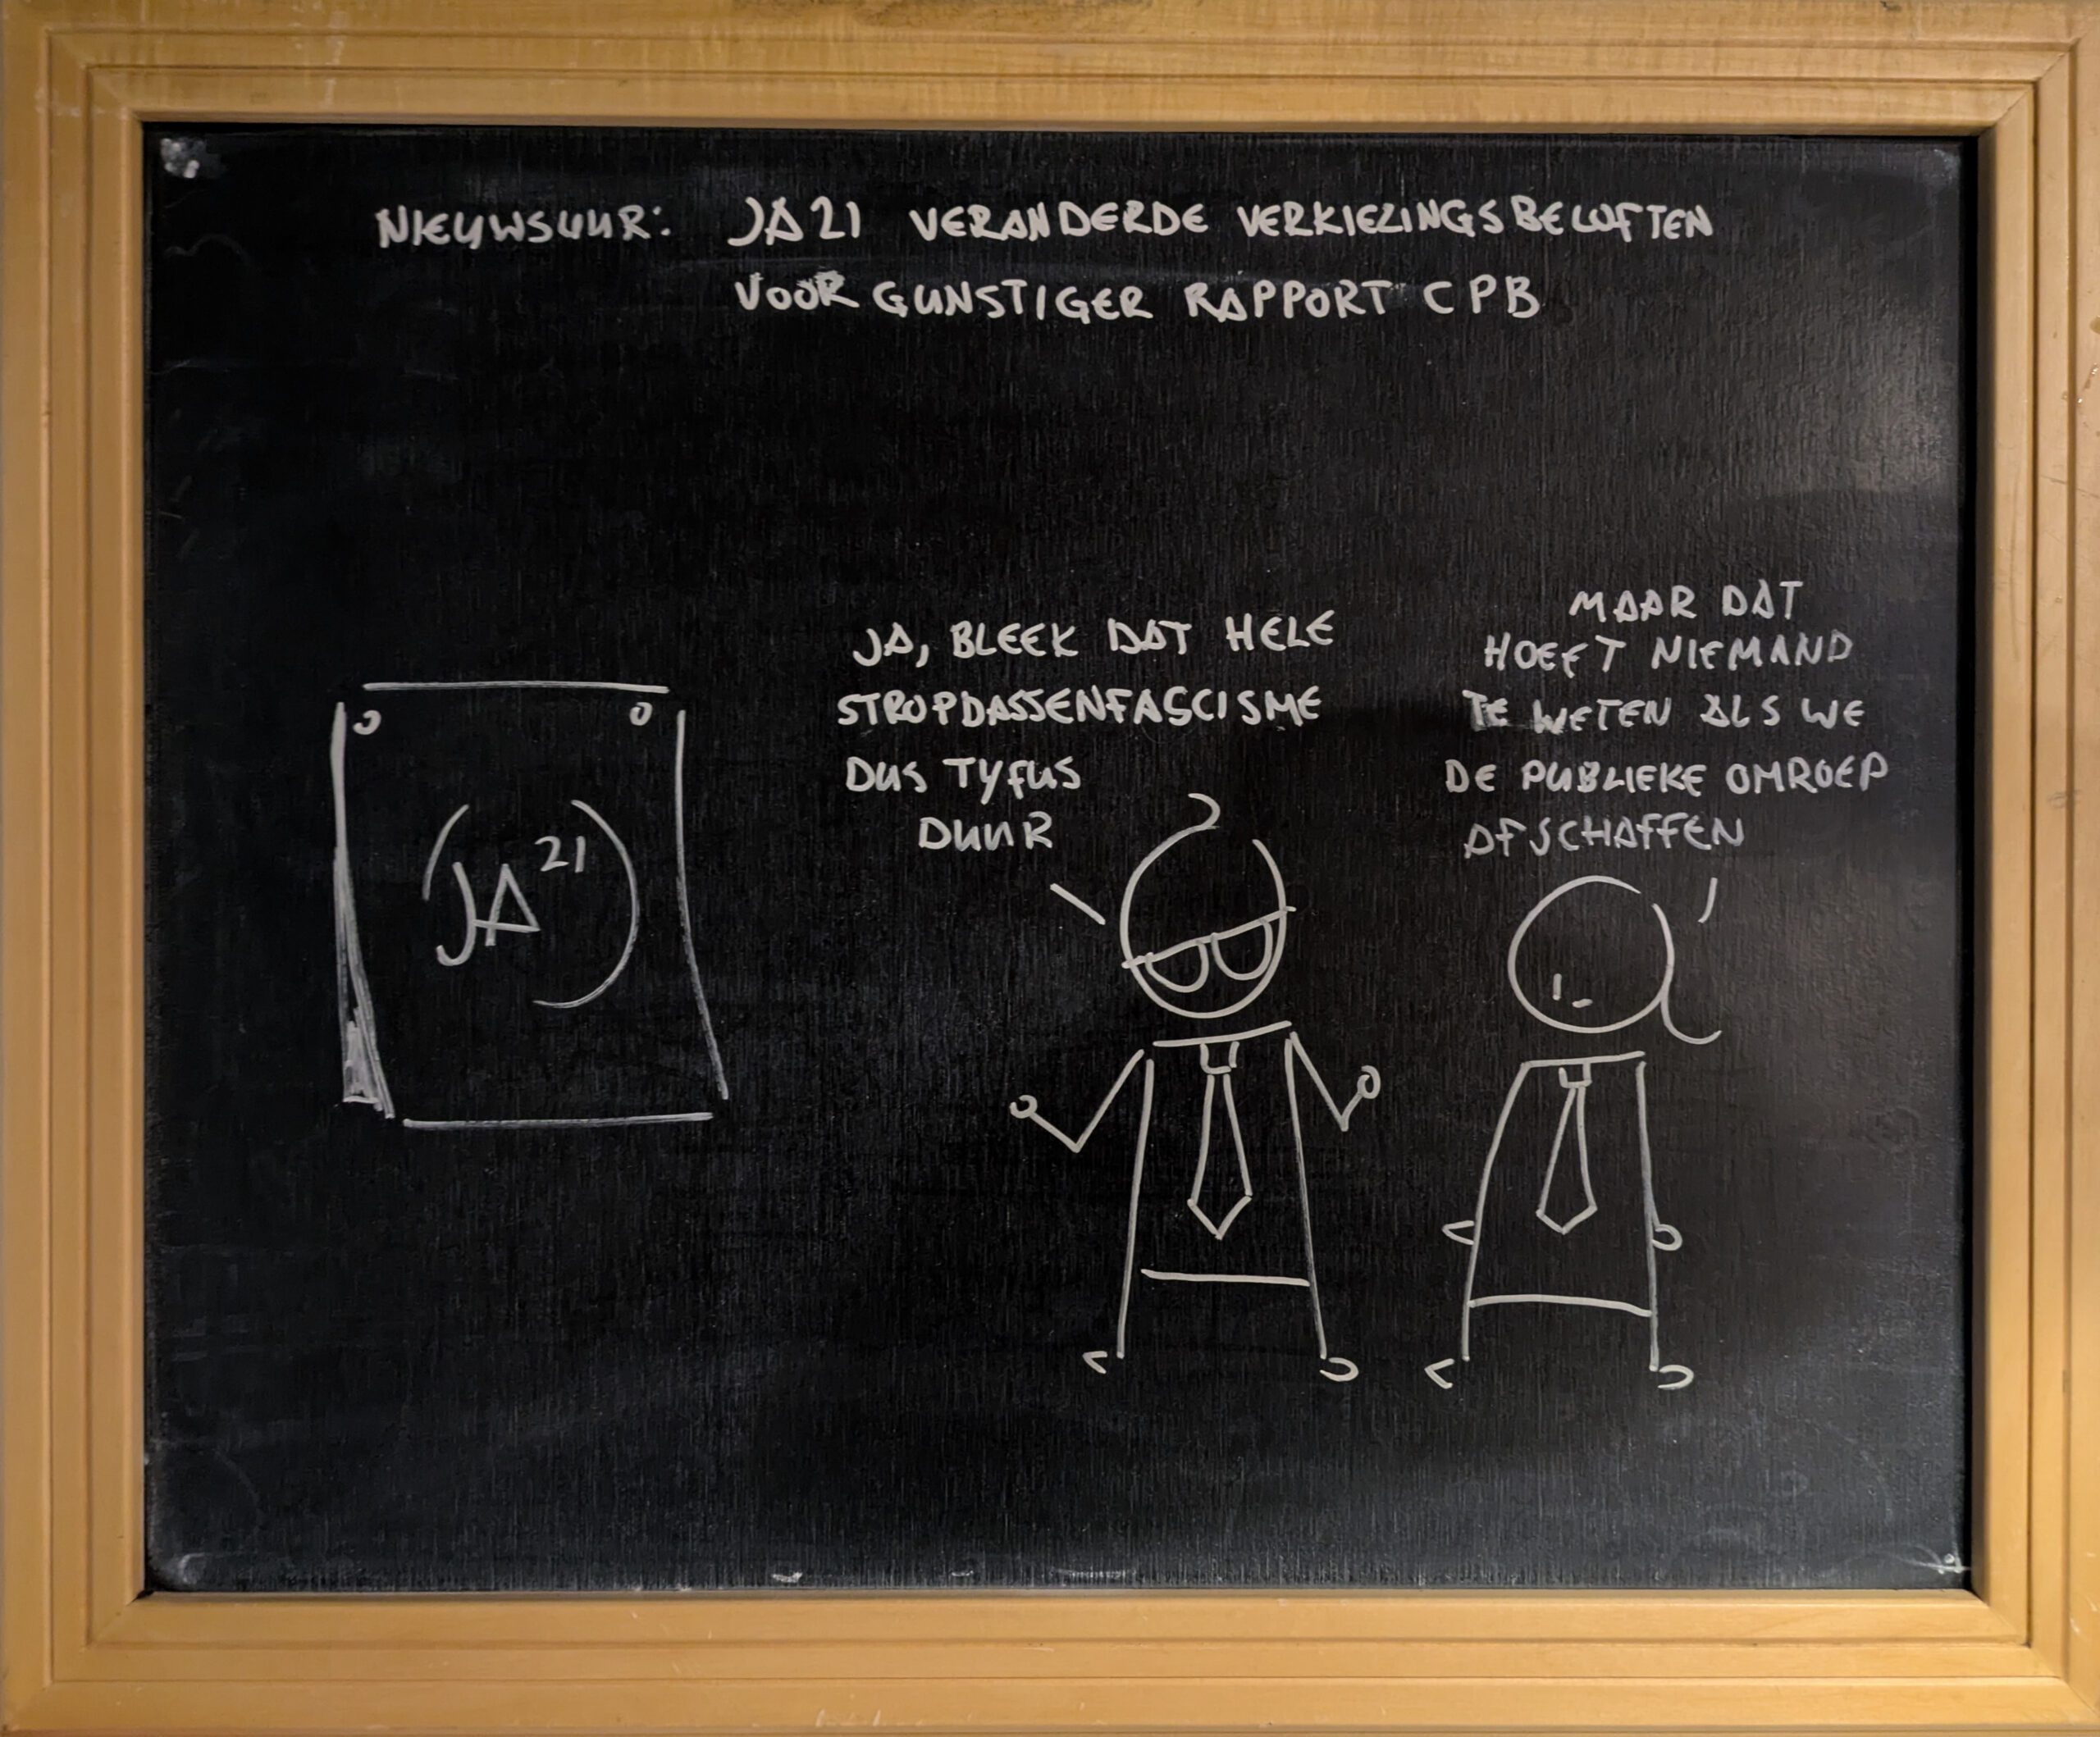 NIEUWSUUR: JA21 VERANDERDE VERKIEZINGSBELOFTEN
VOOR GUNSTIGER RAPPORT CPB
JA21
JA, BLEEK DAT HELE
STROPDASSENFASCISME
DUS TYFUS
DUUR
MAAR DAT
HOEFT NIEMAND
TE WETEN ALS WE
DE PUBLIEKE OMROEP
AFSCHAFFEN